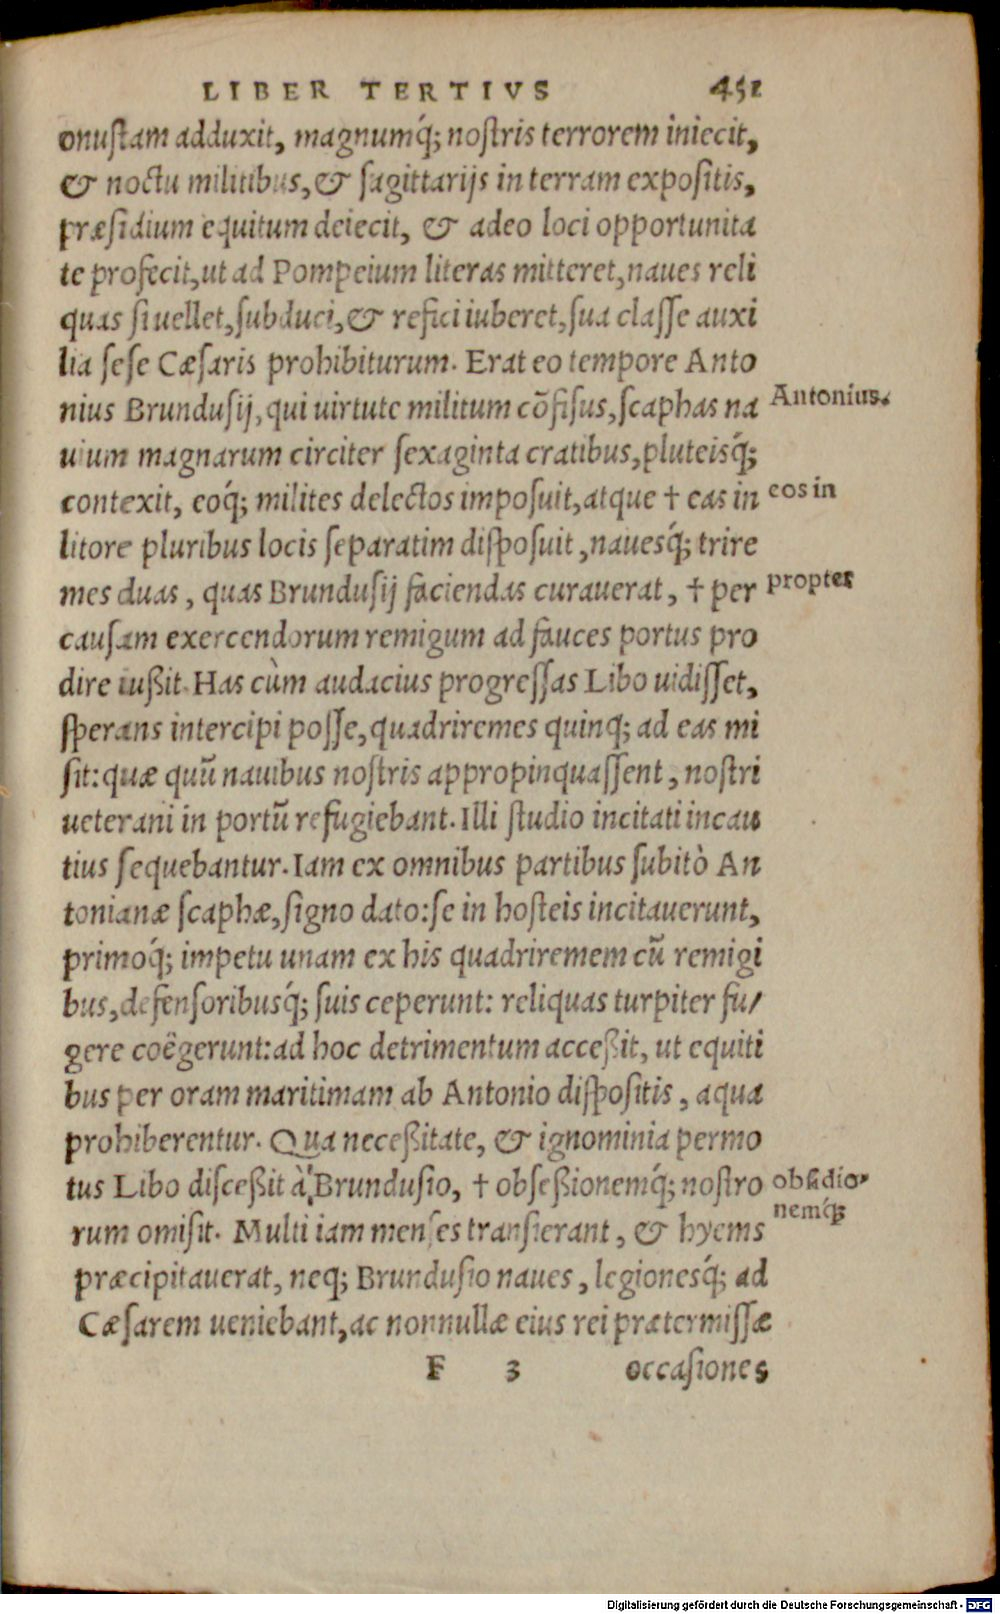 LIBER TERTIVS 451
onuſtam adduxit, magnumq́; noſtris terrorem iniecit,
& noctu militibus, & ſagittarijs in terram expoſitis,
præſidium equitum deiecit, & adeo loci opportunita
te profecit, ut ad Pompeium literas mitteret, naues reli
quas ſi uellet, ſubduci, & refici iuberet, ſua claſſe auxi
lia ſeſe Cæſaris prohibiturum. Erat eo tempore Anto
nius Brunduſij, qui uirtute militum cõfiſus, ſcaphas na
Antonius.
uium magnarum circiter ſexaginta cratibus, pluteisq́;
contexit, eoq́; milites delectos impoſuit, atque † eas in
eos in
litore pluribus locis ſeparatim diſpoſuit, nauesq́; trire
mes duas, quas Brunduſij faciendas curauerat, † per
propter
cauſam exercendorum remigum ad fauces portus pro
dire iußit. Has cùm audacius progreſſas Libo uidiſſet,
ſperans intercipi poſſe, quadriremes quinq; ad eas mi
ſit: quæ quũ nauibus noſtris appropinquaſſent, noſtri
ueterani in portũ refugiebant. Illi ſtudio incitati incau
tius ſequebantur. Iam ex omnibus partibus ſubitò An
tonianæ ſcaphæ, ſigno dato: ſe in hoſteis incitauerunt,
primoq́; impetu unam ex his quadriremem cũ remigi
bus, defenſoribusq́; ſuis ceperunt: reliquas turpiter fu/
gere coëgerunt: ad hoc detrimentum acceßit, ut equiti
bus per oram maritimam ab Antonio diſpoſitis, aqua
prohiberentur. Qua neceßitate, & ignominia permo
tus Libo diſceßit à Brunduſio, † obſeßionemq́; noſtro
obſidio-
nemq́;
rum omiſit. Multi iam menſes tranſierant, & hyems
præcipitauerat, neq; Brunduſio naues, legionesq́; ad
Cæſarem ueniebant, ac nonnullæ eius rei prætermiſſæ
F 3 occaſiones
Digitalisierung gefördert durch die Deutsche Forschungsgemeinschaft - DFG